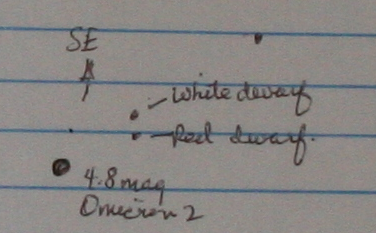 SE
White dwarf
Red dwarf.
4.8 mag
Omicron 2